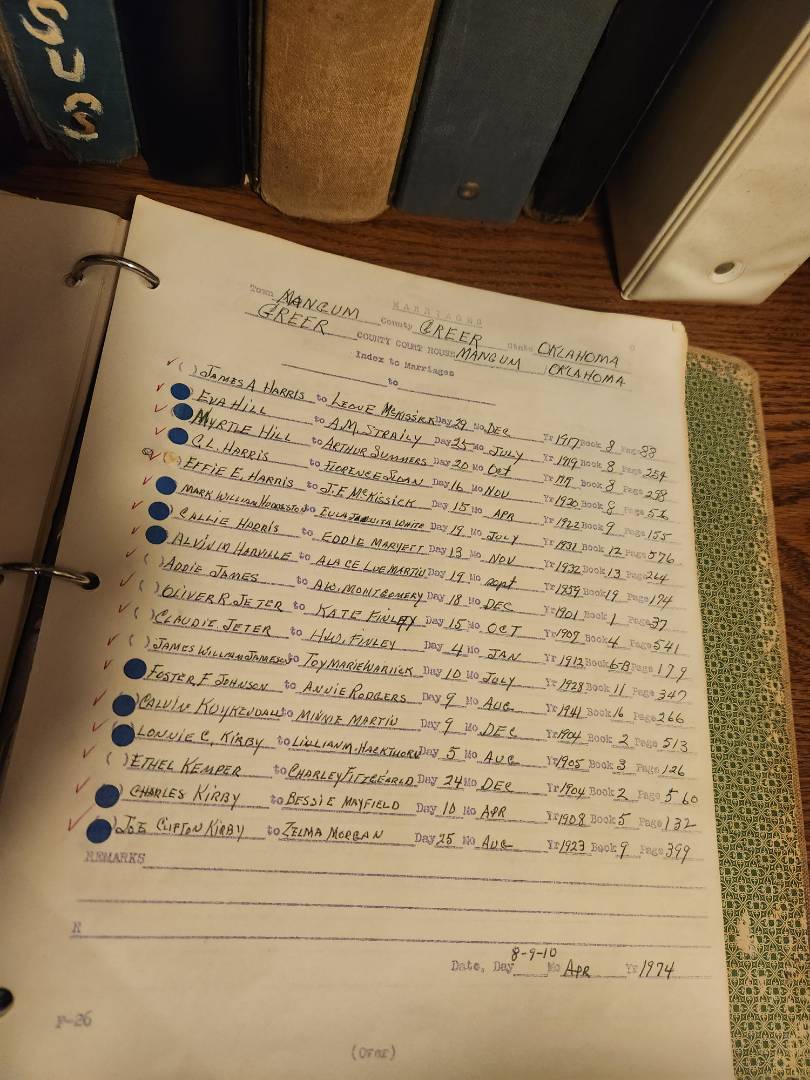 SUAS
MARRIAGES
Town MANGUM County GREER State OKLAHOMA
GREER COUNTY COURT HOUSE MANGUM OKLAHOMA
Index to Marriages
to
( ) JAMES A HARRIS to LEOUE MCKISSICK Day 29 Mo DEC Yr 1917 Book 8 Page 88
EVA HILL to A.M. STRAILY Day 25 Mo JULY Yr 1919 Book 8 Page 254
MYRTLE HILL to ARTHUR SUMMERS Day 20 Mo Oct Yr Book 8 Page 258
C.L. HARRIS to FLORENCE SLOAN Day 16 Mo NOV Yr 1920 Book 8 Page
EFFIE E. HARRIS to J.E MCKISSICK Day 15 Mo APR Yr 1922 Book 9 Page 155
MARK WILLIAM to EULA JAUNITA WHITE Day 19 Mo JULY Yr 1931 Book 12 Page 576
CALLIE HARRIS to EDDIE MARYETT Day 13 Mo NOV Yr 1932 Book 13 Page 264
ALVIN M HARVILLE to ALA CE LUE MARTIN Day 19 Mo Sept Yr 1959 Book 19 Page 194
( ) ADDIE JAMES to A.W. MONTGOMERY Day 18 Mo DEC Yr 1901 Book 1 Page 37
( ) OLIVER R. JETER to KATE FINLEY Day 15 Mo OCT Yr 1909 Book 4 Page 541
( ) CLAUDIE JETER to H.W. FINLEY Day 4 Mo JAN Yr 1912 Book 6-B Page 179
( ) JAMES WILLIAM JAMESON to TOY MARIE WARIICK Day 10 Mo JULY Yr 1928 Book 11 Page 347
FOSTER F JOHNSON to ANNIE RODGERS Day 9 Mo AUG Yr 1941 Book 16 Page 266
CALVIN KUYKENDALL to MINNIE MARTIN Day 9 Mo DEC Yr 1904 Book 2 Page 513
LONNIE C, KIRBY to LILLIAN M. HACKTHORN Day 5 Mo AUG Yr 1905 Book 3 Page 126
( ) ETHEL KEMPER to CHARLEY FITZGEARLD Day 24 Mo DEC Yr 1904 Book 2 Page 560
CHARLES KIRBY to BESSIE MAYFIELD Day 10 Mo APR Yr 1908 Book 5 Page 132
JOE CLIFTON KIRBY to ZELMA MORGAN Day 25 Mo AUG Yr 1923 Book 9 Page 399
REMARKS
R
Date, Day 8-9-10 Mo APR Yr 1974
F-26
(OVER)